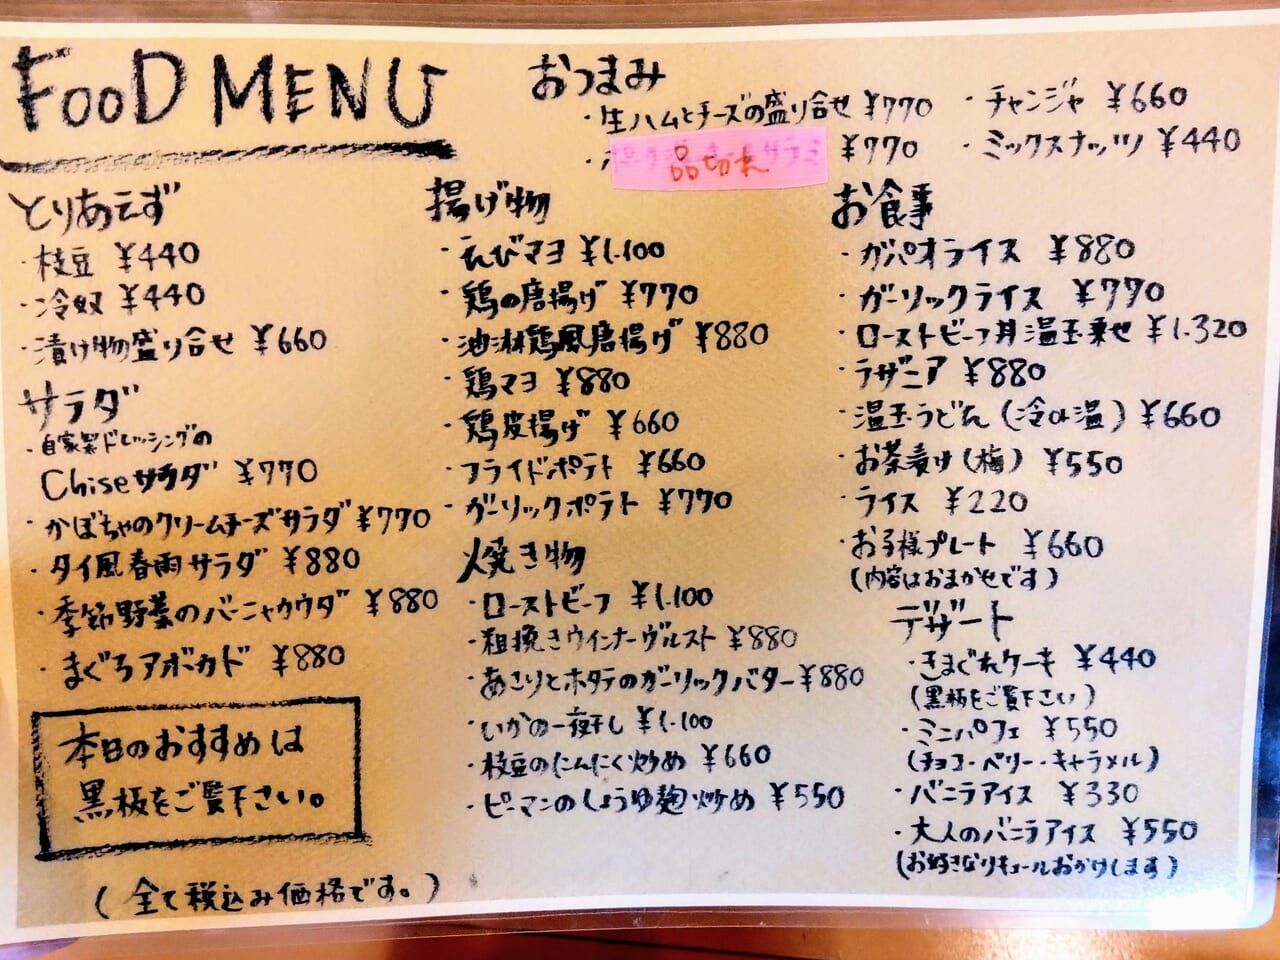 FOOD MENU
とりあえず
・枝豆 ¥440
・冷奴 ¥440
・漬け物盛り合せ ¥660
サラダ
・自家製ドレッシングの
Chiseサラダ ¥770
・かぼちゃのクリームチーズサラダ ¥770
・タイ風春雨サラダ ¥880
・季節野菜のバーニャカウダ ¥880
・まぐろアボカド ¥880
本日のおすすめは
黒板をご覧下さい。
(全て税込み価格です。)
おつまみ
・生ハムとチーズの盛り合せ ¥770
・品切れ ¥770
・チャンジャ ¥660
・ミックスナッツ ¥440
揚げ物
・えびマヨ ¥1.100
・鶏の唐揚げ ¥770
・油淋鶏風唐揚げ ¥880
・鶏マヨ ¥880
・鶏皮揚げ ¥660
・フライドポテト ¥660
・ガーリックポテト ¥770
焼き物
・ローストビーフ ¥1.100
・粗挽きウインナーヴルスト ¥880
・あさりとホタテのガーリックバター ¥880
・いかの一夜干し ¥1.100
・枝豆のにんにく炒め ¥660
・ピーマンのしょうゆ麹炒め ¥550
お食事
・ガパオライス ¥880
・ガーリックライス ¥770
・ローストビーフ丼温玉乗せ ¥1.320
・ラザニア ¥880
・温玉うどん(冷or温) ¥660
・お茶漬け(梅) ¥550
・ライス ¥220
・お子様プレート ¥660
(内容はおまかせです)
デザート
・きまぐれケーキ ¥440
(黒板をご覧下さい)
・ミニパフェ ¥550
(チョコ・ベリー・キャラメル)
・バニラアイス ¥330
・大人のバニラアイス ¥550
(お好きなリキュールおかけします)